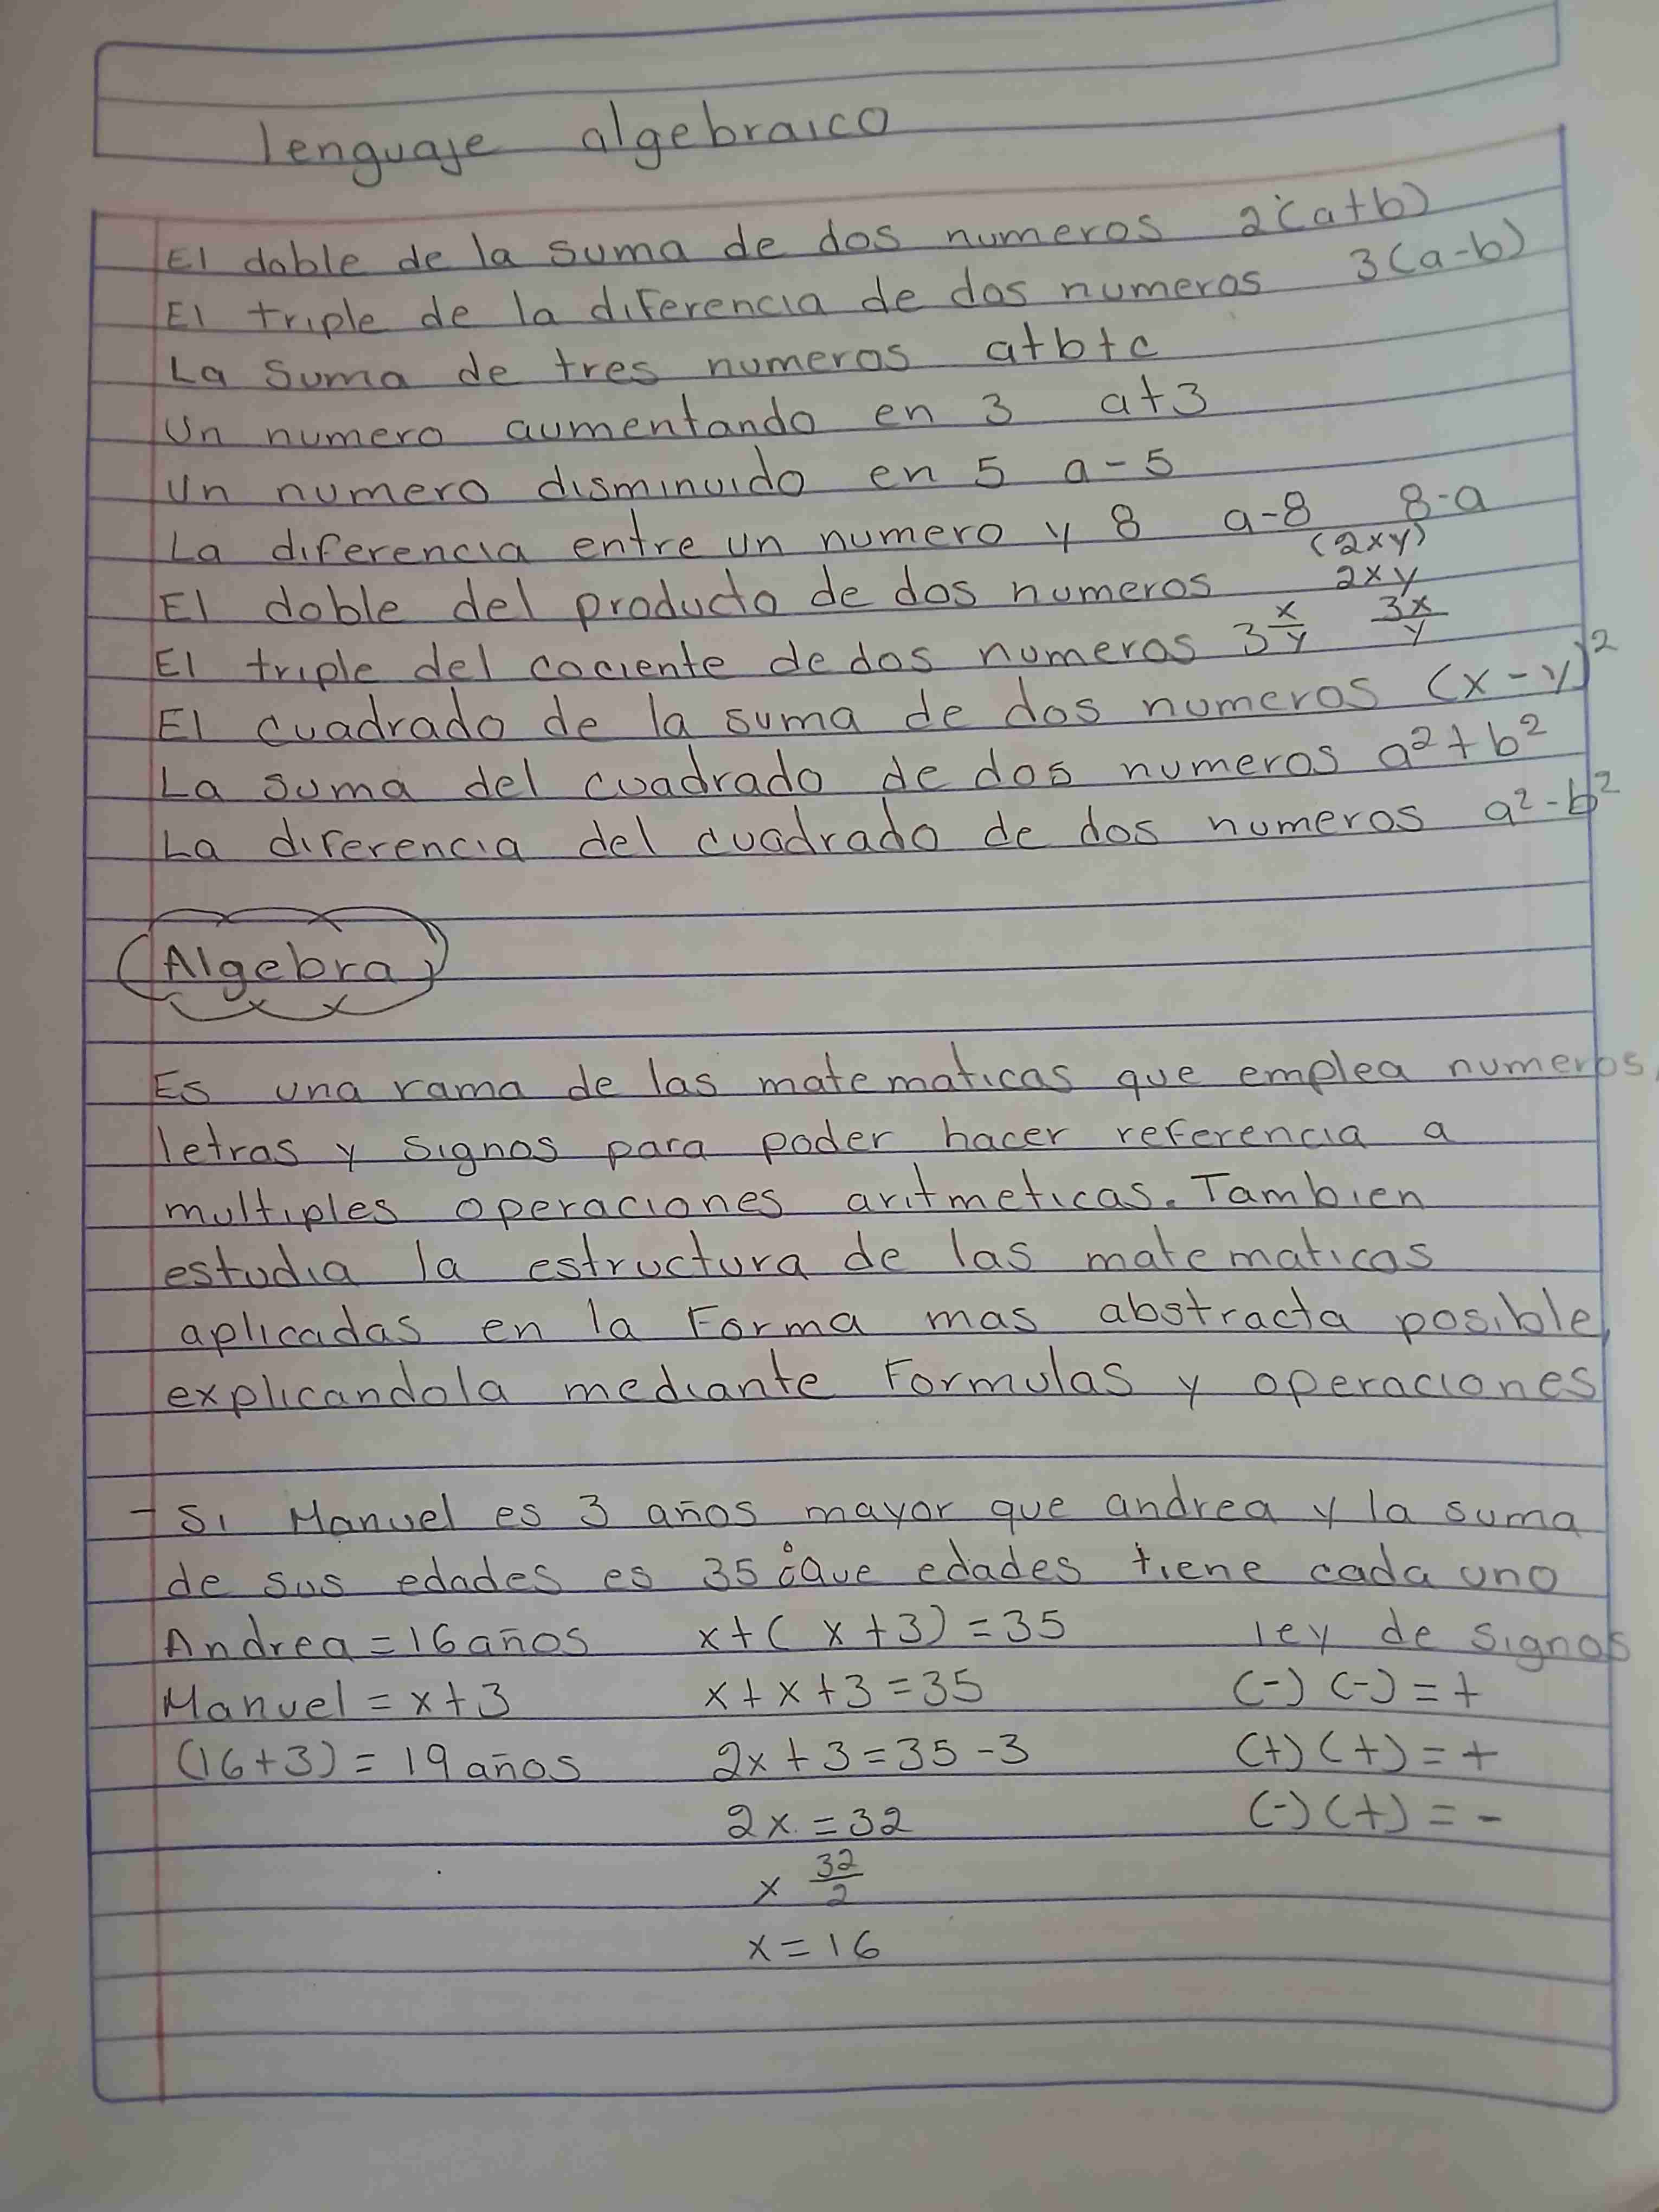 lenguaje algebraico
El doble de la suma de dos numeros 2(a+b)
El triple de la diferencia de dos numeros 3(a-b)
La suma de tres numeros a+b+c
Un numero aumentando en 3 a+3
Un numero disminuido en 5 a-5
La diferencia entre un numero y 8 a-8 8-a
(2xy)
El doble del producto de dos numeros 2xy
El triple del cociente de dos numeros 3 x/y 3x/y
El cuadrado de la suma de dos numeros (x-y)²
La suma del cuadrado de dos numeros a²+b²
La diferencia del cuadrado de dos numeros a²-b²
Algebra
Es una rama de las matematicas que emplea numeros,
letras y signos para poder hacer referencia a
multiples operaciones aritmeticas. Tambien
estudia la estructura de las matematicas
aplicadas en la Forma mas abstracta posible,
explicandola mediante Formulas y operaciones
- Si Manuel es 3 años mayor que andrea y la suma
de sus edades es 35 ¿Que edades tiene cada uno
Andrea = 16 años x+(x+3)=35 ley de signos
Manuel = x+3 x+x+3=35 (-)(-)=+
(16+3)= 19 años 2x+3=35-3 (+)(+)=+
2x=32 (-)(+)=-
x 32/2
x=16